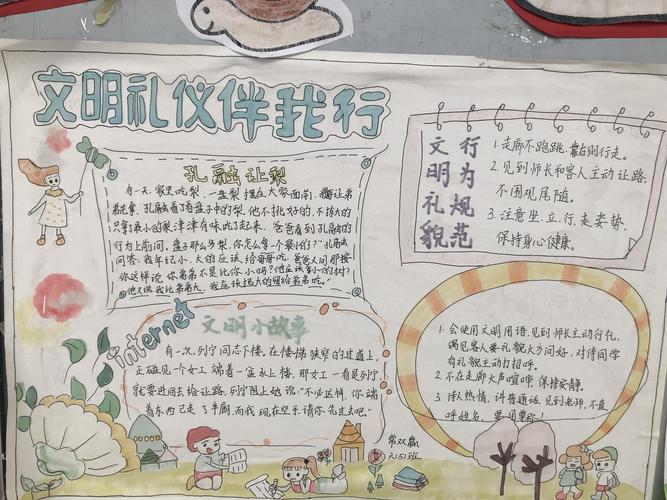 文明礼仪伴我行
孔融让梨
有一天,家里吃梨,一盘梨摆在大家面前,
孔融看了看盘子中的梨,他不挑好的,不拣大的
只拿最小的梨津津有味吃了起来。爸爸看到孔融的
行为上前问,盘子那么多梨,你怎么拿一个最小的?"孔融
问答:我年纪小,大的应该给哥哥吃。爸爸又问那按
你这样说,你弟弟不是比你小吗?他应该拿小的
他又说我比弟弟大,我应该把大的留给弟弟吃。"
文明礼貌
行为规范
1.走廊不跑跳,靠右则行走。
2.见到师长和客人主动让路,
不围观尾随。
3.注意坐、立、行、走姿势,
保持身心健康。
internet
文明小故事
有一次,列宁同志下楼。在楼梯狭窄的过道上,
正碰见一个女工端着一盆水上楼。那女工一看是列宁,
就要退回去给让路,列宁阻止她说:"不必这样,你端
着东西已走了半廊,而我现在空手,请你先过去吧。"
1.会使用文明用语,见到师长主动行礼,
偶见客人要礼貌大方问好,对待同学
有礼貌主动打招呼。
2.不在走廊大声喧哗,保持安静。
3.待人热情,讲普通话,见到老师,不直
呼姓名,
常双赢
六(5)班